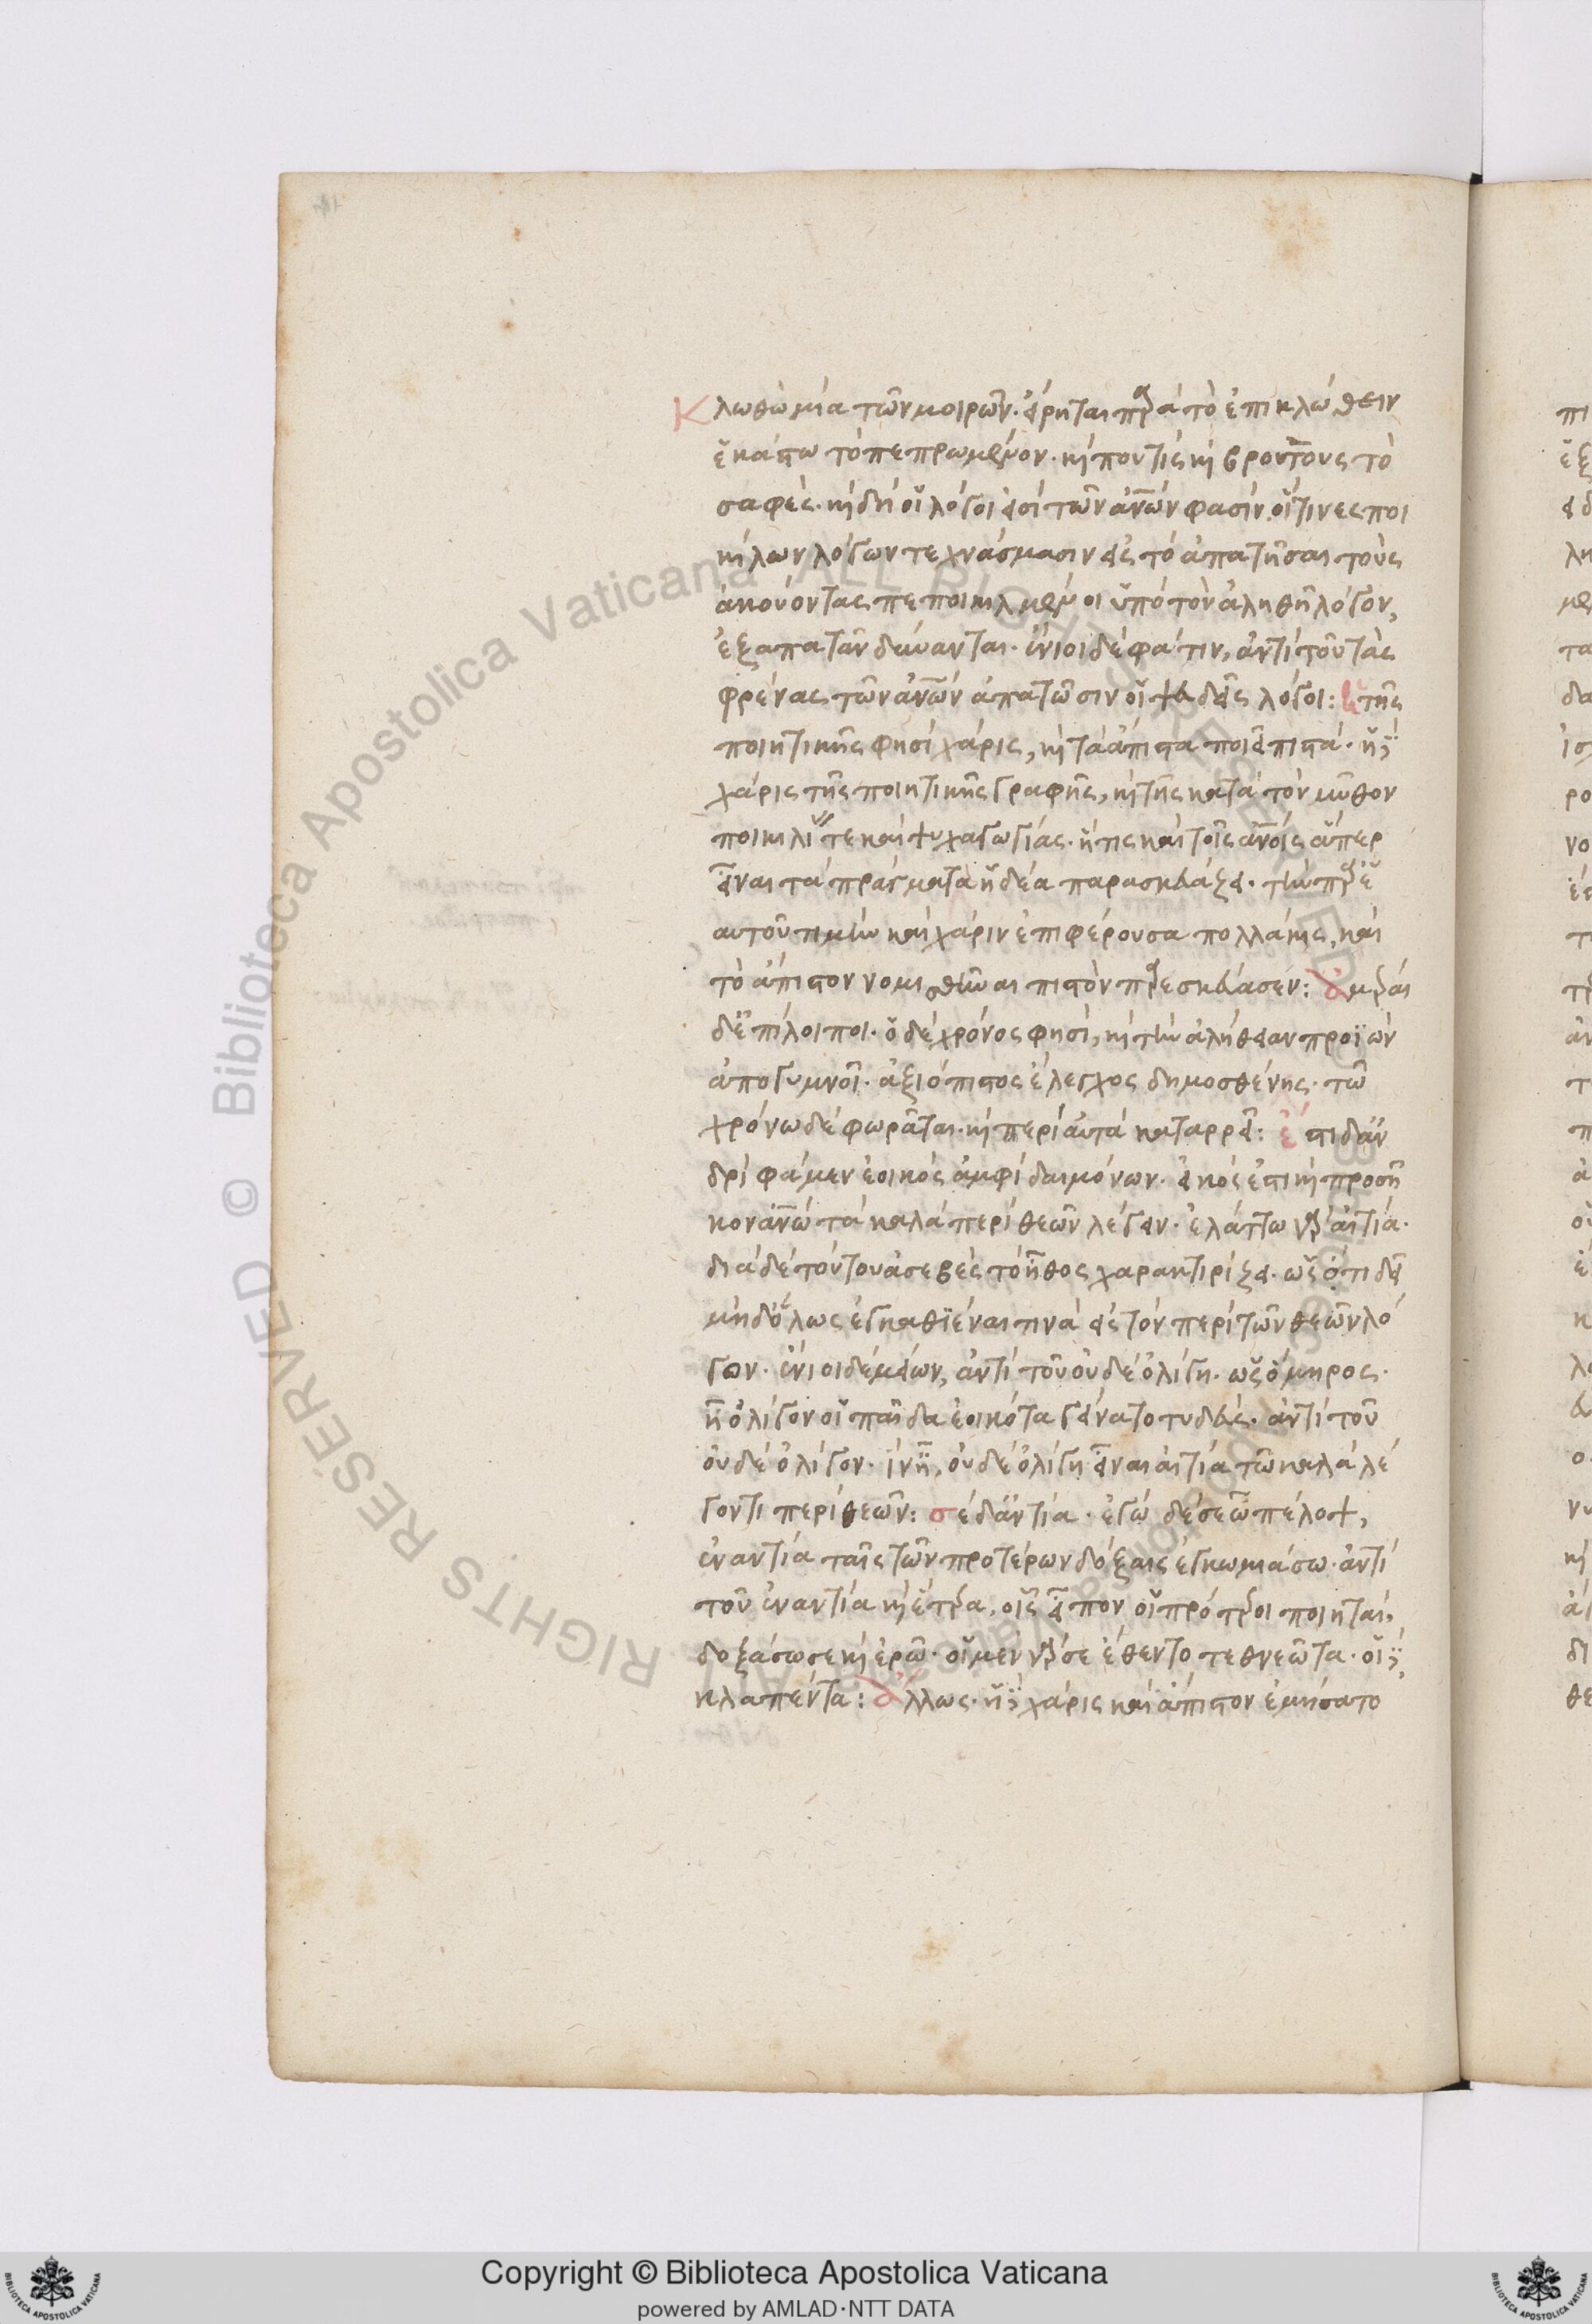 Κλωθὼ μία τῶν μοιρῶν. εἴρηται παρὰ τὸ ἐπικλώθειν
ἑκάστω τὸ πεπρωμένον. καὶ πού τις καὶ βροτοὺς τὸ
σαφές. καὶ δὴ οἱ λόγοι εἰσὶ τῶν ἀνῶν φασίν. οἵτινες ποι
κίλων λόγων τεχνάσμασιν εἰς τὸ ἀπατῆσαι τοὺς
ἀκούοντας πεποικιλμένοι ὑπὸ τὸν ἀληθῆ λόγον,
ἐξαπατᾶν δύνανται. ἔνιοι δέ φασιν, ἀντὶ τοῦ τὰς
φρένας τῶν ἀνῶν ἀπατῶσιν οἱ ψευδεῖς λόγοι: ἡ τῆς
ποιητικῆς φησὶ χάρις, καὶ τὰ ἄπιστα ποιεῖ πιστά. ἡ γὰρ
χάρις τῆς ποιητικῆς γραφῆς, καὶ τῆς κατὰ τὸν μῦθον
ποικιλίας τε καὶ ψυχαγωγίας. ἥτις καὶ τοῖς ἀνοις ἅπερ
εἶναι τὰ πράγματα ἡδέα παρασκευάζει. τὴν παρ' ἑ
αυτοῦ τιμὴν καὶ χάριν ἐπιφέρουσα πολλάκις, καὶ
τὸ ἄπιστον νομισθῆναι πιστὸν παρεσκεύασεν: ἁμέραι
δ' ἐπίλοιποι. ὁ δὲ χρόνος φησὶ, καὶ τὴν ἀλήθειαν προϊὼν
ἀπογυμνοῖ. ἀξιόπιστος ἔλεγχος δημοσθένης. τῶ
χρόνω δὲ φωρᾶται. καὶ περὶ αὐτὰ καταρρεῖ: ἔστι δ' ἀν
δρὶ φάμεν ἐοικὸς ἀμφὶ δαιμόνων. εἰκός ἐστι καὶ προσῆ
κον ἀνῶ τὰ καλὰ περὶ θεῶν λέγειν. ἐλάττω γὰρ αἰτία.
διὰ δὲ τούτου ἀσεβὲς τὸ ἦθος χαρακτιρίζει. ὡς ὅτι δεῖ
μηδ' ὅλως ἐγκαθιέναι τινὰ εἰς τὸν περὶ τῶν θεῶν λό
γον. ἔνιοι δὲ μείων, ἀντὶ τοῦ οὐδὲ ὀλίγη. ὡς ὅμηρος.
ἦ ὀλίγον οἷ παῖδα ἐοικότα γείνατο τυδεύς. ἀντὶ τοῦ
οὐδὲ ὀλίγον. ἵν' ἦ, οὐδὲ ὀλίγη εἶναι αἰτία τῶ καλὰ λέ
γοντι περὶ θεῶν: σὲ δ' ἀντία. ἐγὼ δέ σε ὦ πέλοψ,
ἐναντία ταῖς τῶν προτέρων δόξαις ἐγκωμιάσω. ἀντὶ
τοῦ ἐναντία καὶ ἕτερα, οἷς εἶπον οἱ πρότεροι ποιηταί,
δοξάσω σε καὶ ἐρῶ. οἱ μὲν γάρ σε ἔθεντο τεθνεῶτα. οἱ δὲ
κλαπέντα: ἄλλως. ἡ γὰρ χάρις καὶ ἄπιστον ἐμήσατο
Copyright © Biblioteca Apostolica Vaticana
powered by AMLAD·NTT DATA